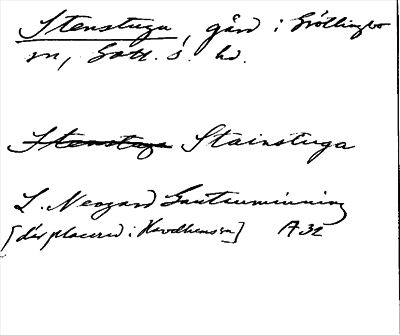 Stenstuga, gård i Gröttlingbo
sn, Gotl. s. hd.
Stenstuga Stainstuga
L. Neogard Gautauminning
[där placerad i Havdhem sn] A 32